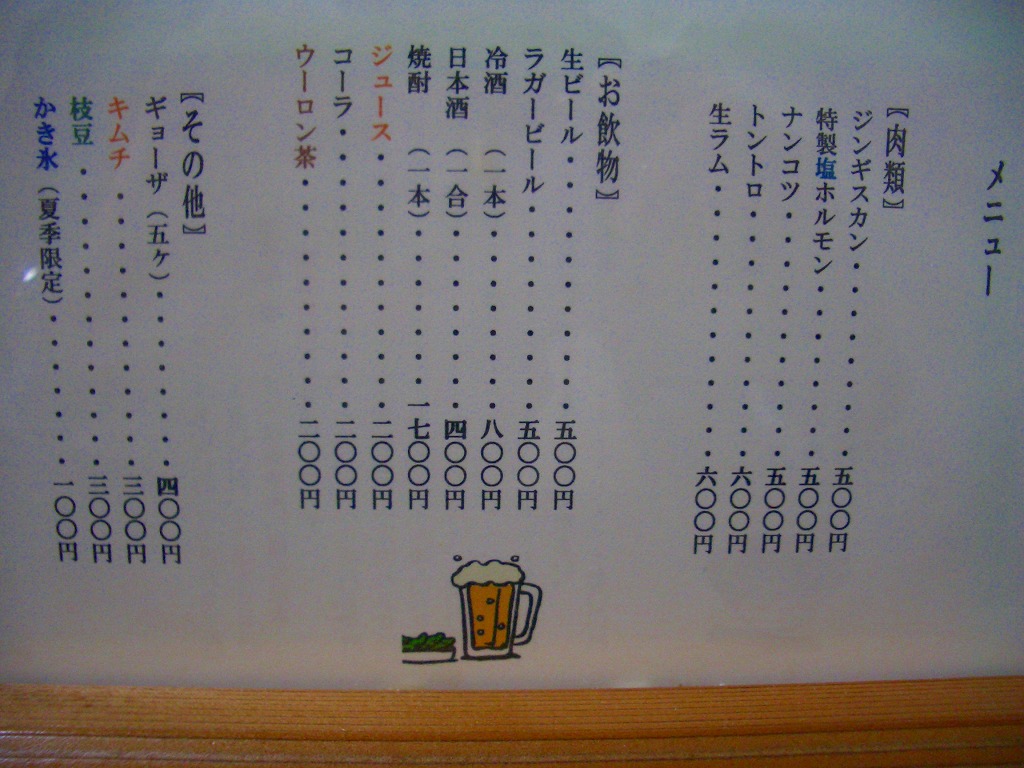 メニュー
【肉類】
ジンギスカン・・・・・・・・・五〇〇円
特製塩ホルモン・・・・・・・・五〇〇円
ナンコツ・・・・・・・・・・・五〇〇円
トントロ・・・・・・・・・・・六〇〇円
生ラム・・・・・・・・・・・・六〇〇円
【お飲物】
生ビール・・・・・・・・・・・五〇〇円
ラガービール・・・・・・・・・五〇〇円
冷酒 (一本)・・・・・・・・八〇〇円
日本酒 (一合)・・・・・・・・四〇〇円
焼酎 (一本)・・・・・・・一七〇〇円
ジュース・・・・・・・・・・・二〇〇円
コーラ・・・・・・・・・・・・二〇〇円
ウーロン茶・・・・・・・・・・二〇〇円
【その他】
ギョーザ(五ヶ)・・・・・・・・四〇〇円
キムチ・・・・・・・・・・・・三〇〇円
枝豆・・・・・・・・・・・・・三〇〇円
かき氷(夏季限定)・・・・・・・一〇〇円